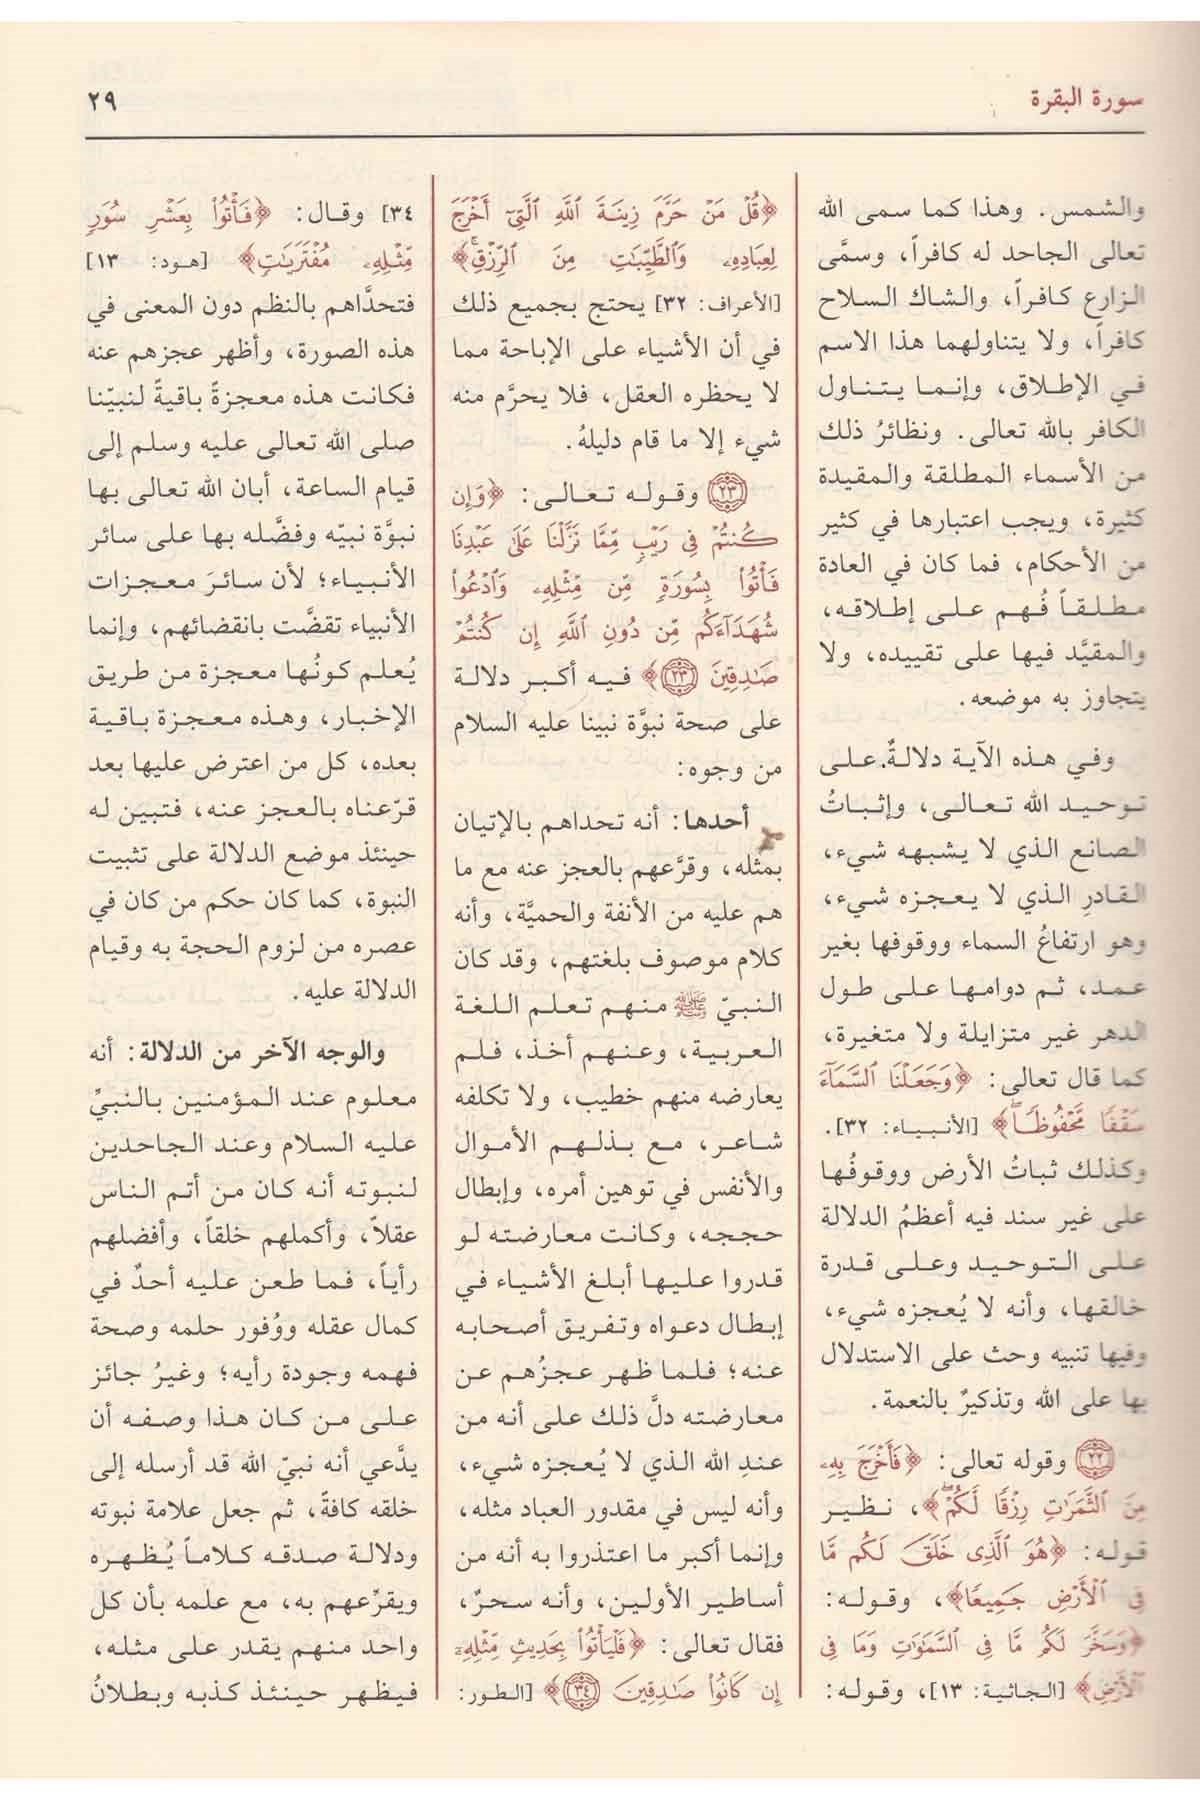 سورة البقرة
٢٩
والشمس. وهذا كما سمى الله
تعالى الجاحد له كافراً، وسمَّى
الزارع كافراً، والشاك السلاح
كافراً، ولا يتناولهما هذا الاسم
في الإطلاق، وإنما يتناول
الكافر بالله تعالى. ونظائرُ ذلك
من الأسماء المطلقة والمقيدة
كثيرة، ويجب اعتبارها في كثير
من الأحكام، فما كان في العادة
مطلقاً فُهم على إطلاقه،
والمقيَّد فيها على تقييده، ولا
يتجاوز به موضعه.
وفي هذه الآية دلالةٌ على
توحيد الله تعالى، وإثباتُ
الصانع الذي لا يشبهه شيء،
القادرِ الذي لا يعجزه شيء،
وهو ارتفاعُ السماء ووقوفها بغير
عمد، ثم دوامها على طول
الدهر غير متزايلة ولا متغيرة،
كما قال تعالى: ﴿وَجَعَلْنَا السَّمَآءَ
سَقْفًا مَّحْفُوظًا﴾ [الأنبياء: ٣٢].
وكذلك ثباتُ الأرض ووقوفُها
على غير سند فيه أعظمُ الدلالة
على التوحيد وعلى قدرة
خالقها، وأنه لا يُعجزه شيء،
وفيها تنبيه وحث على الاستدلال
بها على الله وتذكيرٌ بالنعمة.
٢٢ وقوله تعالى: ﴿فَأَخْرَجَ بِهِۦ
مِنَ ٱلثَّمَرَٰتِ رِزْقًا لَّكُمْ﴾، نظير
قوله: ﴿هُوَ ٱلَّذِى خَلَقَ لَكُم مَّا
فِى ٱلْأَرْضِ جَمِيعًا﴾، وقوله:
﴿وَسَخَّرَ لَكُم مَّا فِى ٱلسَّمَٰوَٰتِ وَمَا فِى
ٱلْأَرْضِ﴾ [الجاثية: ١٣]، وقوله:
﴿قُلْ مَنْ حَرَّمَ زِينَةَ ٱللَّهِ ٱلَّتِىٓ أَخْرَجَ
لِعِبَادِهِۦ وَٱلطَّيِّبَٰتِ مِنَ ٱلرِّزْقِ﴾
[الأعراف: ٣٢] يحتج بجميع ذلك
في أن الأشياء على الإباحة مما
لا يحظره العقل، فلا يحرَّم منه
شيء إلا ما قام دليلهُ.
٢٣ وقوله تعالى: ﴿وَإِن
كُنتُمْ فِى رَيْبٍ مِّمَّا نَزَّلْنَا عَلَىٰ عَبْدِنَا
فَأْتُوا۟ بِسُورَةٍ مِّن مِّثْلِهِۦ وَٱدْعُوا۟
شُهَدَآءَكُم مِّن دُونِ ٱللَّهِ إِن كُنتُمْ
صَٰدِقِينَ ٢٣﴾ فيه أكبر دلالة
على صحة نبوَّة نبينا عليه السلام
من وجوه:
أحدها: أنه تحداهم بالإتيان
بمثله، وقرَّعهم بالعجز عنه مع ما
هم عليه من الأنفة والحميَّة، وأنه
كلام موصوف بلغتهم، وقد كان
النبيّ ﷺ منهم تعلم اللغة
العربية، وعنهم أخذ، فلم
يعارضه منهم خطيب، ولا تكلفه
شاعر، مع بذلهم الأموال
والأنفس في توهين أمره، وإبطال
حججه، وكانت معارضته لو
قدروا عليها أبلغ الأشياء في
إبطال دعواه وتفريق أصحابه
عنه؛ فلما ظهر عجزُهم عن
معارضته دلَّ ذلك على أنه من
عندِ الله الذي لا يُعجزه شيء،
وأنه ليس في مقدور العباد مثله،
وإنما أكبر ما اعتذروا به أنه من
أساطير الأولين، وأنه سحرٌ،
فقال تعالى: ﴿فَلْيَأْتُوا۟ بِحَدِيثٍ مِّثْلِهِۦٓ
إِن كَانُوا۟ صَٰدِقِينَ ٣٤﴾ [الطور:
٣٤] وقال: ﴿فَأْتُوا۟ بِعَشْرِ سُوَرٍ
مِّثْلِهِۦ مُفْتَرَيَٰتٍ﴾ [هود: ١٣]
فتحدَّاهم بالنظم دون المعنى في
هذه الصورة، وأظهر عجزهم عنه
فكانت هذه معجزةً باقيةً لنبيّنا
صلى الله تعالى عليه وسلم إلى
قيام الساعة، أبان الله تعالى بها
نبوَّة نبيّه وفضَّله بها على سائر
الأنبياء؛ لأن سائرَ معجزات
الأنبياء تقضَّت بانقضائهم، وإنما
يُعلم كونُها معجزة من طريق
الإخبار، وهذه معجزة باقية
بعده، كل من اعترض عليها بعد
قرّعناه بالعجز عنه، فتبين له
حينئذ موضع الدلالة على تثبيت
النبوة، كما كان حكم من كان في
عصره من لزوم الحجة به وقيام
الدلالة عليه.
والوجه الآخر من الدلالة: أنه
معلوم عند المؤمنين بالنبيِّ
عليه السلام وعند الجاحدين
لنبوته أنه كان من أتم الناس
عقلاً، وأكملهم خلقاً، وأفضلهم
رأياً، فما طعن عليه أحدٌ في
كمال عقله ووُفور حلمه وصحة
فهمه وجودة رأيه؛ وغيرُ جائز
على من كان هذا وصفه أن
يدَّعي أنه نبيّ الله قد أرسله إلى
خلقه كافةً، ثم جعل علامة نبوته
ودلالة صدقه كلاماً يُظهره
ويقرِّعهم به، مع علمه بأن كل
واحد منهم يقدر على مثله،
فيظهر حينئذ كذبه وبطلانُ